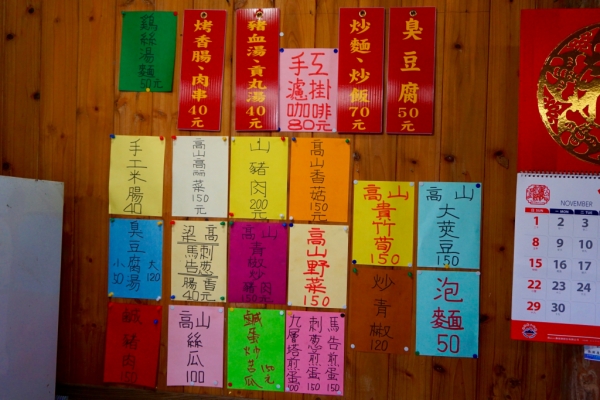 鷄絲湯麵
50元
烤香腸、肉串
40元
豬血湯、貢丸湯
40元
手工
濾掛
咖啡
80元
炒麵、炒飯
70元
臭豆腐
50元
手工米腸
40
高山高
菜
150元
山豬肉
200元
高山香菇
150元
高山
貴竹筍
150
高山
大莢豆
150
臭豆腐湯
小
50
大
120
高粱
馬告
刺蔥
香腸
40元
高山
青椒炒
豬肉
高山
野菜
150
炒青椒
120
泡麵
50
鹹豬肉
150
高山
絲瓜
100
鹹蛋炒苦瓜
馬告煎蛋
150
刺蔥煎蛋
150
九層塔煎蛋
100
NOVEMBER
1 2 3
8 9 10
15 16 17
22 23 24
29 30